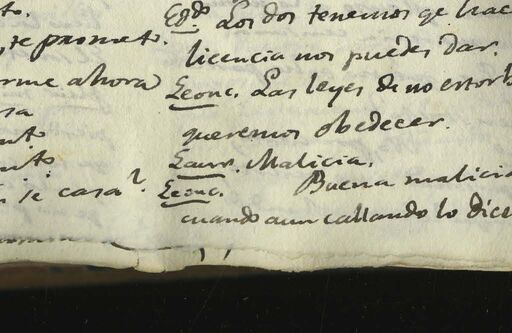 to.
te prometo.
rme ahora
sa
nto
nito
se casa?
Egdo. Los dos tenemos qe hac
licencia nos puedes dar.
Leonc. Las leyes de no estorb
queremos obedecer.
Laur. Malicia.
Leonc. Buena malicia
cuando aun callando lo dice